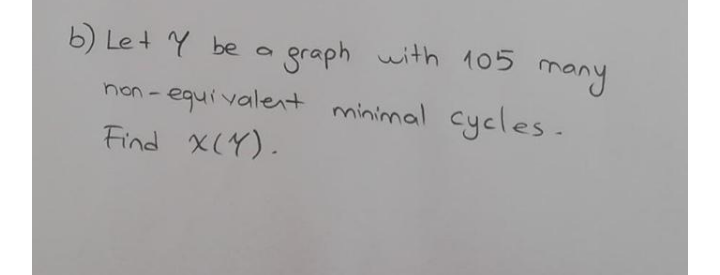 b) Let Y be a graph with 105 many
non-equivalent minimal cycles.
Find X(Y).